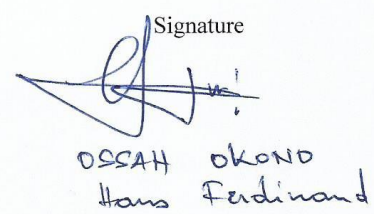 Signature
OSSAH OKONO
Hans Ferdinand